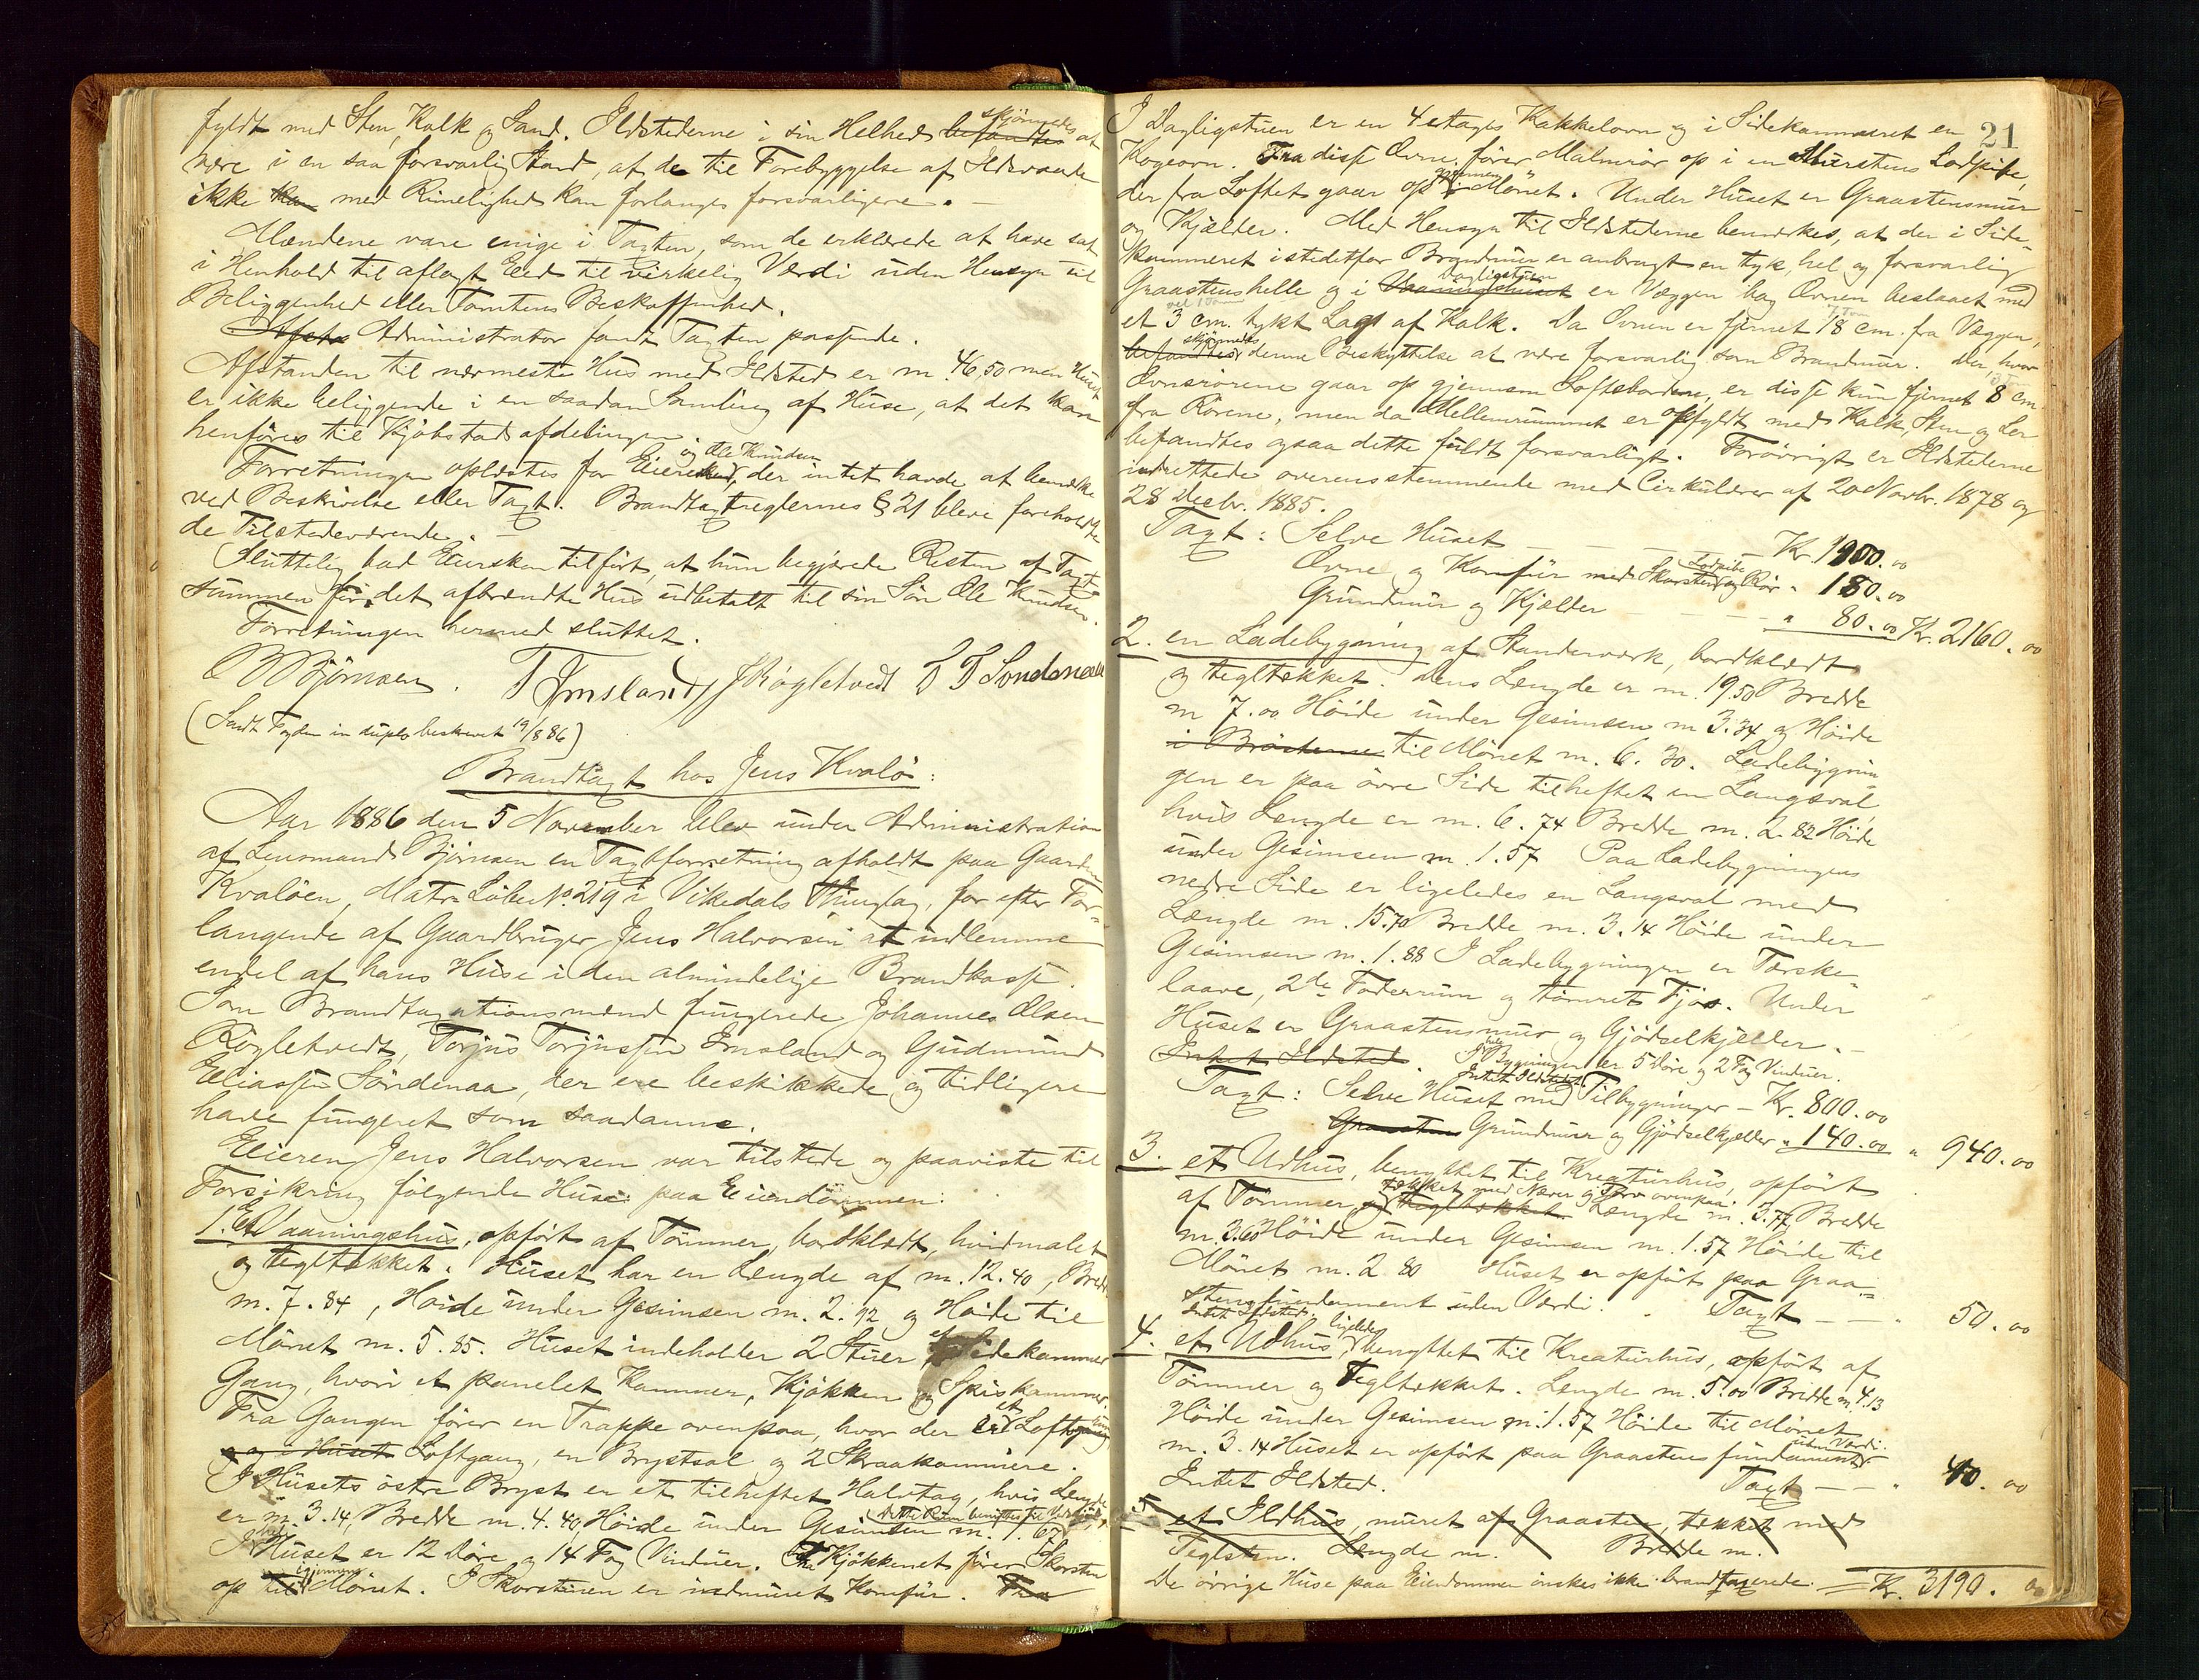 fyldt med Sten, Kalk og Sand. Ildstederne i sin Helhed befandtes skjønnedes at
være i en saa forsvarlig Stand, at de til Forebyggelse af Ildsvaade
ikke kan med Rimelighed kan forlanges forsvarligere. –
Mændene vare enige i Taxten, som de erklærede at have sat
i Henhold til aflagt Eed til virkelig Værdi uden Hensyn til
Beliggenhed eller Tomtens Beskaffenhed.
Afsta Administrator fandt Taxten passende.
Afstanden til nærmeste Hus med Ildsted er m. 46,50 men Huset
er ikke beliggende i en saadan Samling af Huse, at det kan
henføres til Kjøbstadsafdelingen.
Forretningen oplæstes for Eiersken og Ole Knudsen, der intet havde at bemærke
ved Beskrivelse eller Taxt. Brandtaxtreglernes § 21 bleve foreholdte
de Tilstedeværende. –
Sluttelig bad Eiersken tilført, at hun begjærede Resten af Taxt-
summen for det afbrændte Hus udbetalt til sin Søn Ole Knudsen.
Forretningen hermed sluttet.
Bjørnsen. T T Imsland J Røgletvedt G E Søndenaa
(Sendt Fogden in duplo beskrevet 19/8 86)
Brandtaxt hos Jens Kvalø:
Aar 1886 den 5 November blev under Administration
af Lensmand Bjørnsen en Taxtforretning afholdt paa Gaarden
Kvaløen, Matr. Løbe No. 219 i Vikedals Thinglag, for efter For-
langende af Gaardbruger Jens Halvorsen at indlemme
endel af hans Huse i den almindelige Brandkasse.
Som Brandtaxationsmænd fungerede Johannes Olsen
Røgletvedt, Torjus Torjussen Imsland og Gudmund
Eliassen Søndenaa, der ere beskikkede og tidligere
have fungeret som saadanne.
Eieren Jens Halvorsen var tilstede og paaviste til
Forsikring følgende Huse paa Eiendommen:
1. Et Vaaningshus, opført af Tømmer, bordklædt, hvidmalet
og tegltækket. Huset har en Længde af m. 12.40, Bredde
m. 7.84, Høide under Gesimsen m. 2.92 og Høide til
Mønet m. 5.85. Huset indeholder 2 Stuer et Sidekammer
Gang, hvori et panelet Kammer, Kjøkken og Spiskammer.
Fra Gangen fører en Trappe ovenpaa, hvor der er et Loftsrum
og i Huset Loftgang, en Brystsal og 2 Skraakammere.
I Husets østre Bryst er et tilheftet Halvtag, hvis Længde
er m. 3.14, Bredde m. 4.40 Høide under Gesimsen m. 1.67. Dette Rum benyttes til Vedskjul
I hele Huset er 12 Døre og 14 Fag Vinduer. Fra Kjøkkenet fører Skorsten
op til igjennem Mønet. I Skorstenen er indmuret Komfür. Fra
21
I Dagligstuen er en 4 etages Kakkelovn og i Sidekammeret en
Kogeovn. Fra disse Ovne fører Malmrør op i en Murstens Lodpibe,
der fra Loftet gaar op i gjennem Mønet. Under Huset er Graastensmur
og Kjælder. Med Hensyn til Ildstederne bemærkes, at der i Side-
kammeret istedetfor Brandmur er anbragt en tyk, hel og forsvarlig
Graastenshelle og i Vaaningshuset Dagligstuen er Væggen bag Ovnen beslaaet med
et 3 cm. tykt Lag af Kalk. Da Ovnen er fjernet 18 cm. fra Væggen,
befandtes skjønnedes denne Beskyttelse at være forsvarlig som Brandmur. Der, hvor
Ovnsrørene gaar op gjennem Loftsbordene, er disse kun fjernet 8 cm.
fra Rørene, men da Mellemrummet er opfyldt med Kalk, Sten og Ler
befandtes ogsaa dette fuldt forsvarligt. Forøvrigt er Ildstederne
indrettede overensstemmende med Cirkulærer af 20 Novbr. 1878 og
28 Decbr. 1885.
Taxt: Selve Huset – – – – Kr. 1900.00
Ovne og Komfür med Skorsten Lodpibe og Rør " 180.00
Grundmur og Kjælder – – – " 80.00 Kr. 2160.00
2. en Ladebygning af Standerværk, bordklædt
og tegltækket. Dens Længde er m. 19.50 Bredde
m 7.00 Høide under Gesimsen m 3.34 og Høide
i Brösterne til Mønet m. 6.30. Ladebygnin-
gen er paa øvre Side tilheftet en Langsval,
hvis Længde er m. 6.74 Bredde m. 2.82 Høide
under Gesimsen m. 1.57 Paa Ladebygningens
nedre Side er ligeledes en Langsval med
Længde m. 15.70 Bredde m. 3.14 Høide under
Gesimsen m. 1.88 I Ladebygningen er Tærske-
laave, 2de Foderrum og tømret Fjøs. Under
Huset er Graastensmur og Gjødselkjælder. –
Intet Ildsted. I hele Bygningen er 5 Døre og 2 Fag Vinduer.
Intet Ildsted.
Taxt: Selve Huset med Tilbygninger – Kr. 800.00
Graasten Grundmur og Gjødselkjælder " 140.00 " 940.00
3. et Udhus, benyttet til Kreaturhus, opført
af Tømmer og tegltækket tækket med Næver og Torv ovenpaa. Længde m. 3.77 Bredde
m. 3.60 Høide under Gesimsen m. 1.57 Høide til
Mønet m. 2.80 Huset er opført paa Graa-
stensfundament uden Værdi. Taxt – – " 50.00
Intet Ildsted.
4. et Udhus, ligeledes benyttet til Kreaturhus, opført af
Tømmer og Tegltækket. Længde m. 5.00 Bredde m. 4.13
Høide under Gesimsen m. 1.57 Høide til Mønet
m. 3.14 Huset er opført paa Graastensfundament uden Værdi.
Intet Ildsted. Taxt – – " 40.00
5. et Ildhus, muret af Graasten, tækket med
Teglsten. Længde m. Bredde m.
De øvrige Huse paa Eiendommen ønskes ikke brandtaxerede. = Kr. 3190.00